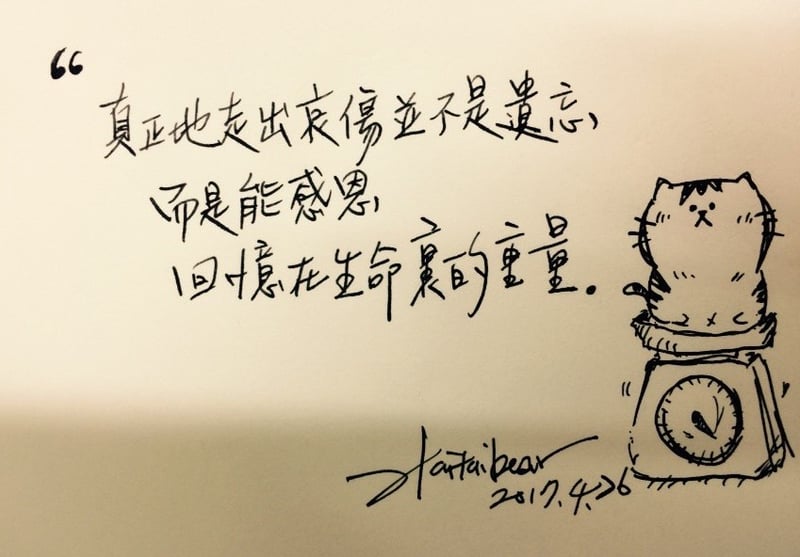 “
真正地走出哀傷並不是遺忘,
而是能感恩,
回憶在生命裏的重量。
2017.4.26